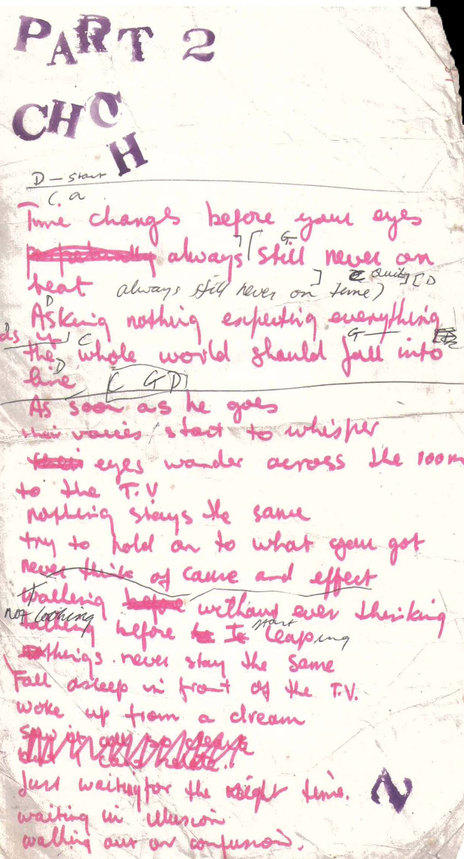 PART 2
CHO
H
D - start
C. a
Time changes before your eyes
always [still never on G
beat always still never on time) Quits] [D
D
Asking nothing expecting everything
C G
the whole world should fall into
line D [C G D]
As soon as he goes
their voices start to whisper
eyes wander across the room
to the T.V
nothing stays the same
try to hold on to what your got
never think of cause and effect
without ever thinking
not looking before I start leaping
things never stay the same
Fall asleep in front of the T.V.
woke up from a dream
Just waiting for the right time.
waiting in illusion
walking out on confusion.
N